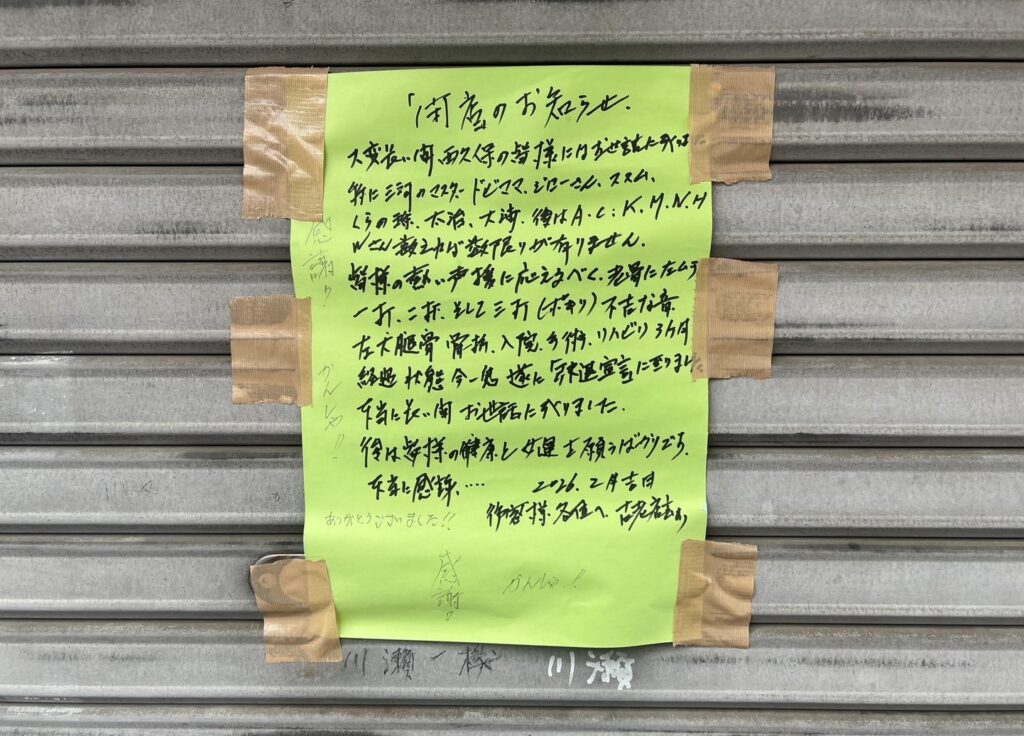 「閉店のお知らせ、
大変長い間、西久保の皆様にはお世話に成りました
特に三詞のマスター ドビママ、ジローさん、ススム、
くらの孫、太治、大海、後はA・C:K、M、N、H
Wさん数えれば数限りが有りません、
皆様の熱い声援に応えるべく、老骨にムチ
一打、二打、そして三打(ポキリ)不吉な音
左大腿骨 骨折、入院、手術、リハビリ3ヶ月
経過 状態 今一息 遂に「引退宣言」に至りました
本当に長い間 お世話に成りました。
後は皆様の健康と女運を願うばかりです。
本当に感謝、‥‥ 2026、2月吉日
御客様各位へ、古老店主より
感謝!
かんしゃ!!
ありがとうございました!!
感謝!
かんしゃ!!
川瀬一機
川瀬